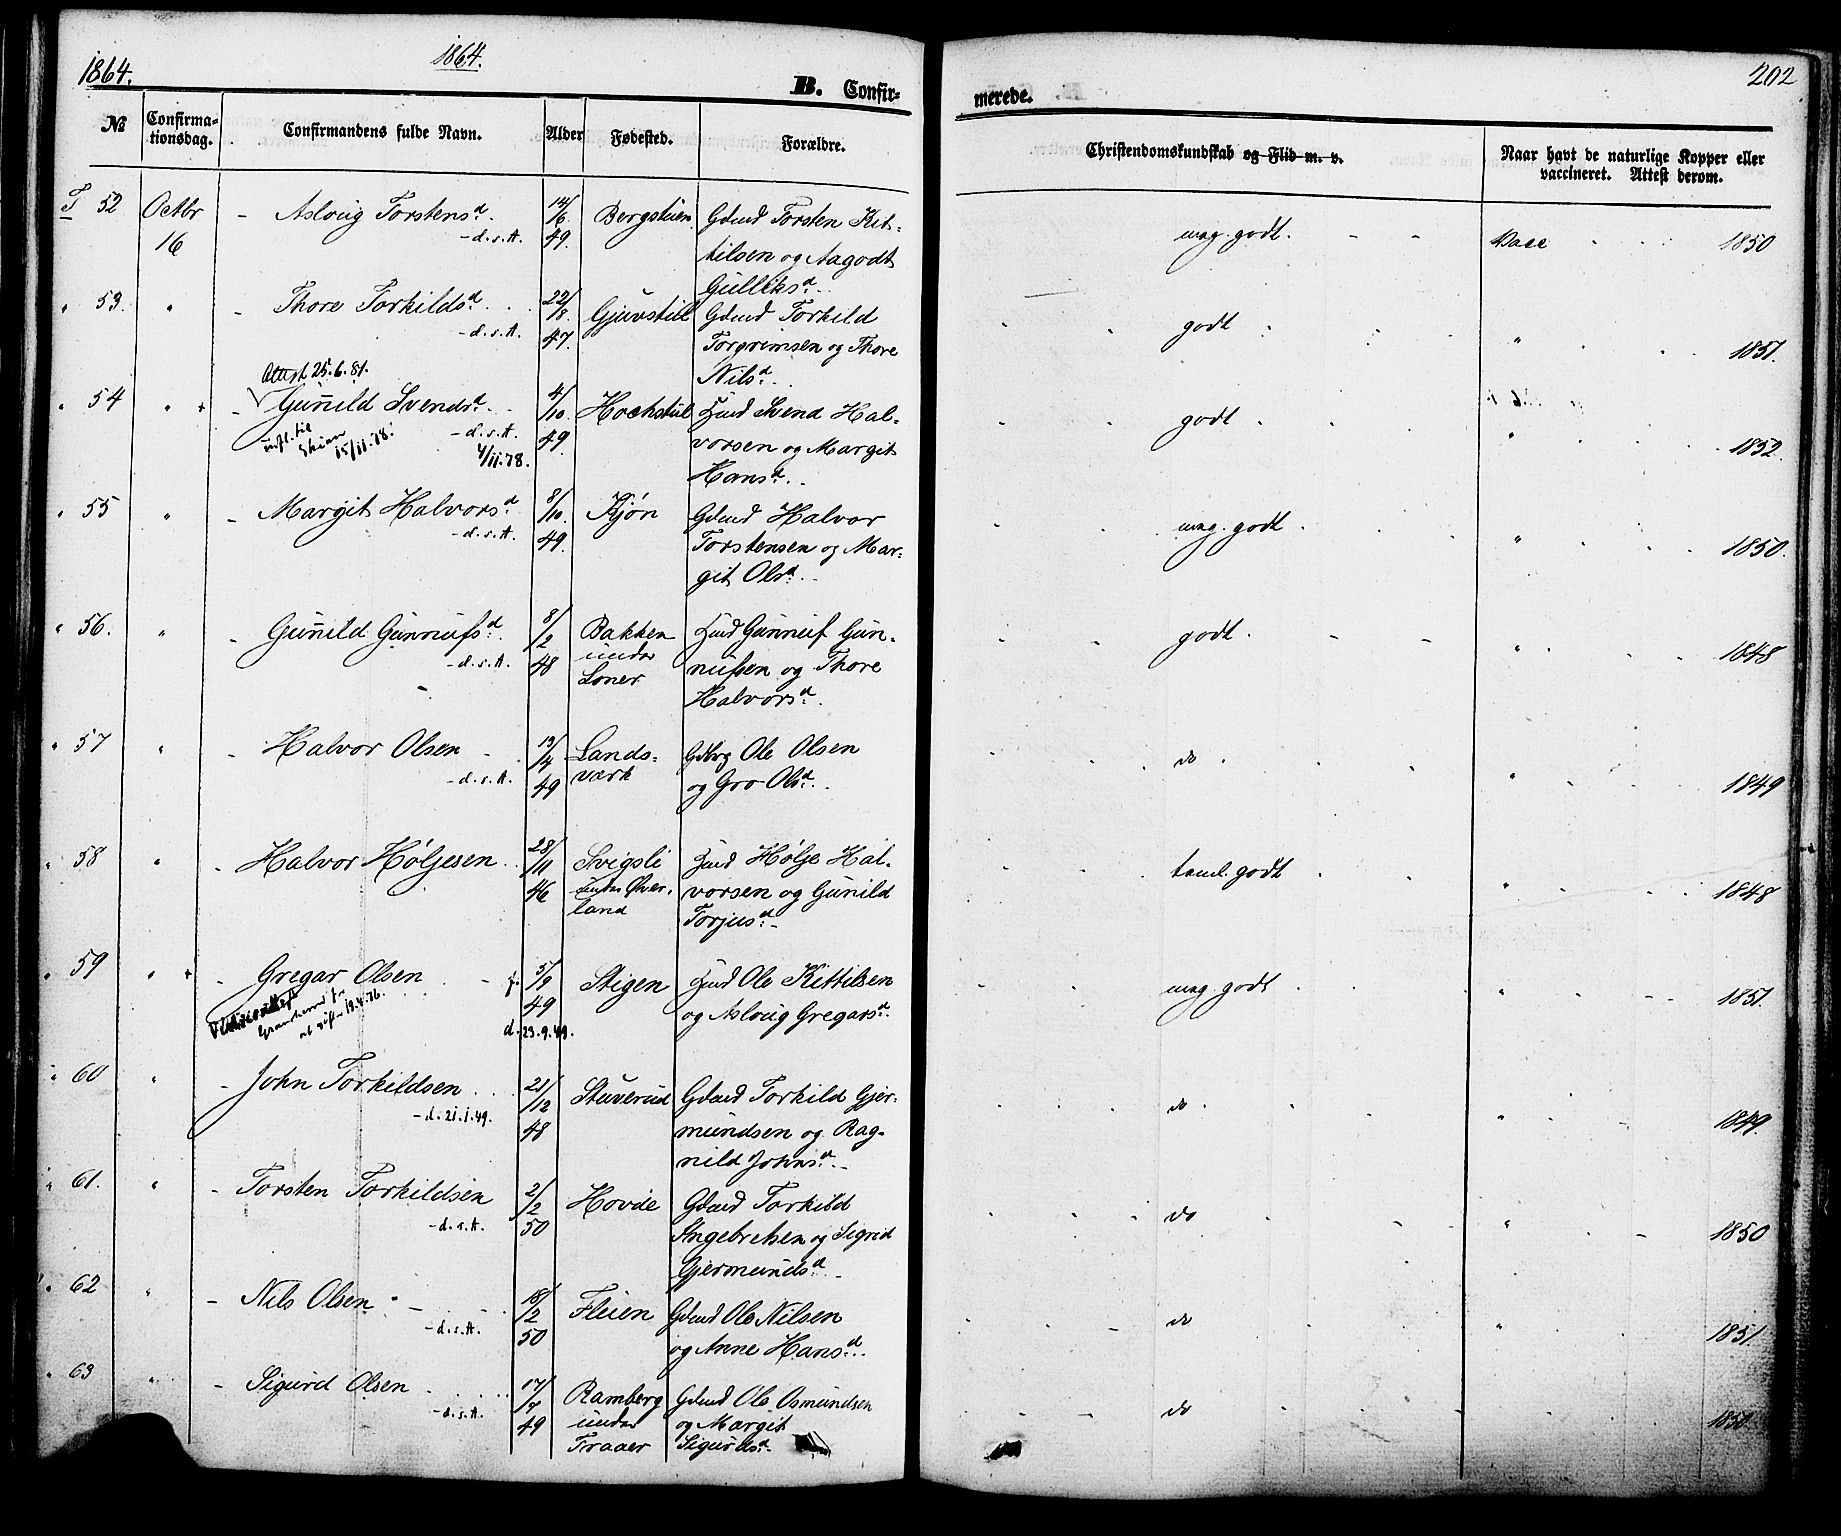 1864.
1864.
202
B. Confir-
merede.
№
Confirma-
tionsdag.
Confirmandens fulde Navn.
Alder
Fødested.
Forældre.
Christendomskundskab og Flid m. v.
Naar havt de naturlige Kopper eller
vaccineret. Attest derom.
T 52 Octbr - Asloug Torstensd. 14/6 Bergstuen Gdmd Torsten Kit-
16 -d.s.A. 49. tilsen og Aagodt
Gulliksd. mag. godt. Vacc 1850
" 53. " - Thore Torkildsd 22/8. Gjuvstul Gdmd Torkild
-d.s.A. 47. Torgrimsen og Thore
Nilsd. godt " 1851.
Attest 25.6.81.
" 54 " + - Gunild Svendsd. 4/10. Hockstul Hmd Svend Hal-
til Skien 15/11.78. -d.s.A. 49. vorsen og Margit
4/11.78. Hansd. godt " 1852.
" 55 " - Margit Halvorsd 8/10. Kjøn Gdmd Halvor
-d.s.A. 49. Torstensen og Mar-
git Olsd. mag. godt " 1850.
" 56. " - Gunild Gunnufsd. 8/2 Bakken Hmd Gunnuf Gun-
-d.s.A. 48 under nufsen og Thore
Loner Halvorsd. godt. " 1848
" 57 " - Halvor Olsen 13/4 Lands- Gdbrg Ole Olsen
-d.s.A. 49 værk og Gro Olsd. do " 1849
" 58 " - Halvor Høljesen 28/11 Svigsli Hmd Hølje Hal-
46 under Øver- vorsen og Gunild
land Torjusd. teml. godt " 1848
" 59 " + - Gregar Olsen f. 5/9 Stigen Hmd Ole Kittilsen
49 og Asloug Gregarsd.
19.4.76. d. 23.9.49. mag. godt " 1851.
" 60 " - John Torkildsen 21/12 Stuverud Gdmd Torkild Gjer-
-d. 21.1.49. 48 mundsen og Rag-
nild Johnsd. do " 1849.
" 61. " - Torsten Torkildsen 2/2 Hovde Gdmd Torkild
-d.s.A. 50 Ingebretsen og Sigrid
Gjermundsd. do " 1850
" 62 " - Nils Olsen 18/2 Fleien Gdmd Ole Nilsen
-d.s.A. 50 og Anne Hansd. do " 1851.
" 63 " - Sigurd Olsen 17/7 Ramberg Gdmd Ole Osmundsen
-d.s.A. 49 under og Margit
Traaer Sigurdsd. do " 1850.